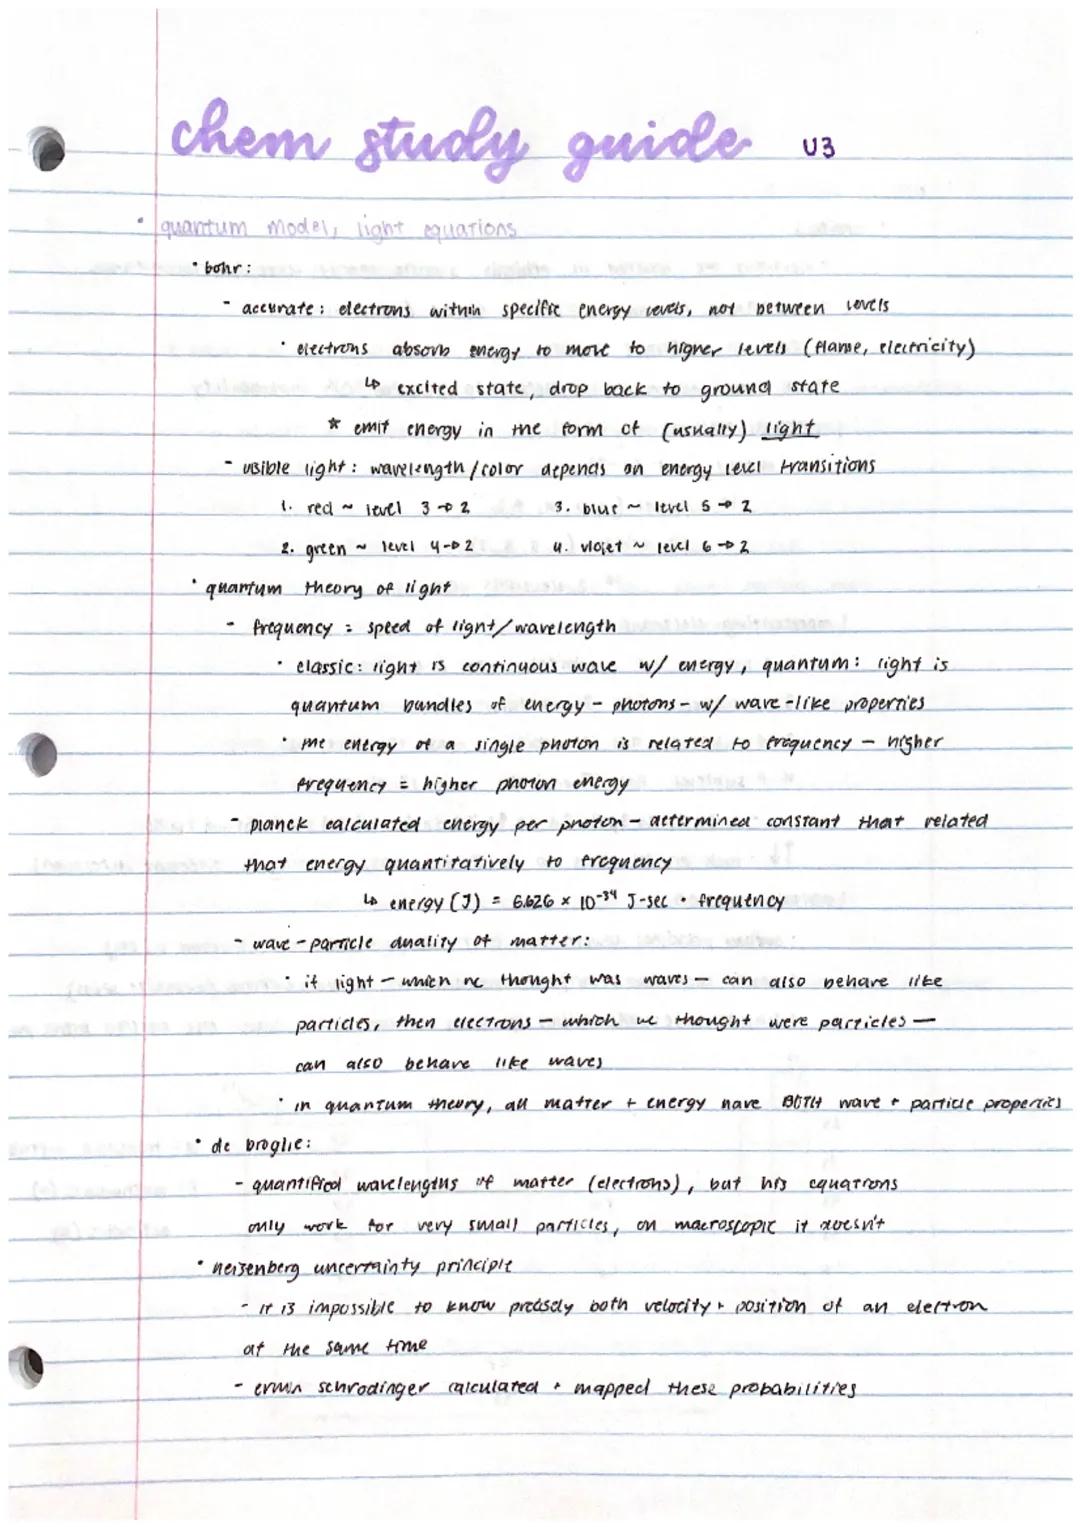 chem study guide U3
• quantum model, light equations
• bohr:
- accurate: electrons within specific energy levels, not between levels
• electrons absorb energy to move to higher levels (flame, electricity)
↳ excited state, drop back to ground state
* emit energy in the form of (usually) light
- visible light: wavelength/color depends on energy level transitions
1. red ~ level 3 → 2 3. blue ~ level 5 → 2
2. green ~ level 4 → 2 4. violet ~ level 6 → 2
• quantum theory of light
- frequency = speed of light/wavelength
• classic: light is continuous wave w/ energy, quantum: light is
quantum bundles of energy - photons - w/ wave-like properties
• the energy of a single photon is related to frequency - higher
frequency = higher photon energy
- planck calculated energy per photon - determined constant that related
that energy quantitatively to frequency
↳ energy (J) = 6.626 × 10⁻³⁴ J-sec • frequency
- wave-particle duality of matter:
• if light - which we thought was waves - can also behave like
particles, then electrons - which we thought were particles -
can also behave like waves
• in quantum theory, all matter + energy have BOTH wave + particle properties
• de broglie:
- quantified wavelengths of matter (electrons), but his equations
only work for very small particles, on macroscopic it doesn't
• heisenberg uncertainty principle
- it is impossible to know precisely both velocity + position of an electron
at the same time
- erwin schrodinger calculated + mapped these probabilities